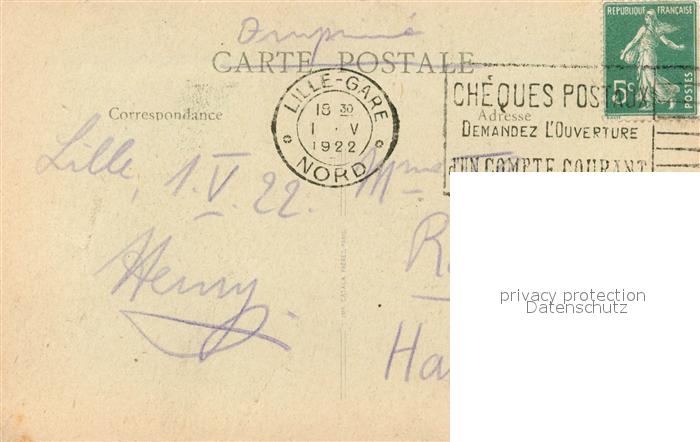 Imprimé
CARTE POSTALE
RÉPUBLIQUE FRANÇAISE
5c
POSTES
LILLE-GARE
18 30
1 · V
1922
NORD
CHÉQUES POSTAUX
DEMANDEZ L'OUVERTURE
D'UN COMPTE COURANT
Correspondance
Adresse
Lille, 1.V.22.
Henry
Mme
IMP. CATALA FRÈRES, PARIS
privacy protection
Datenschutz